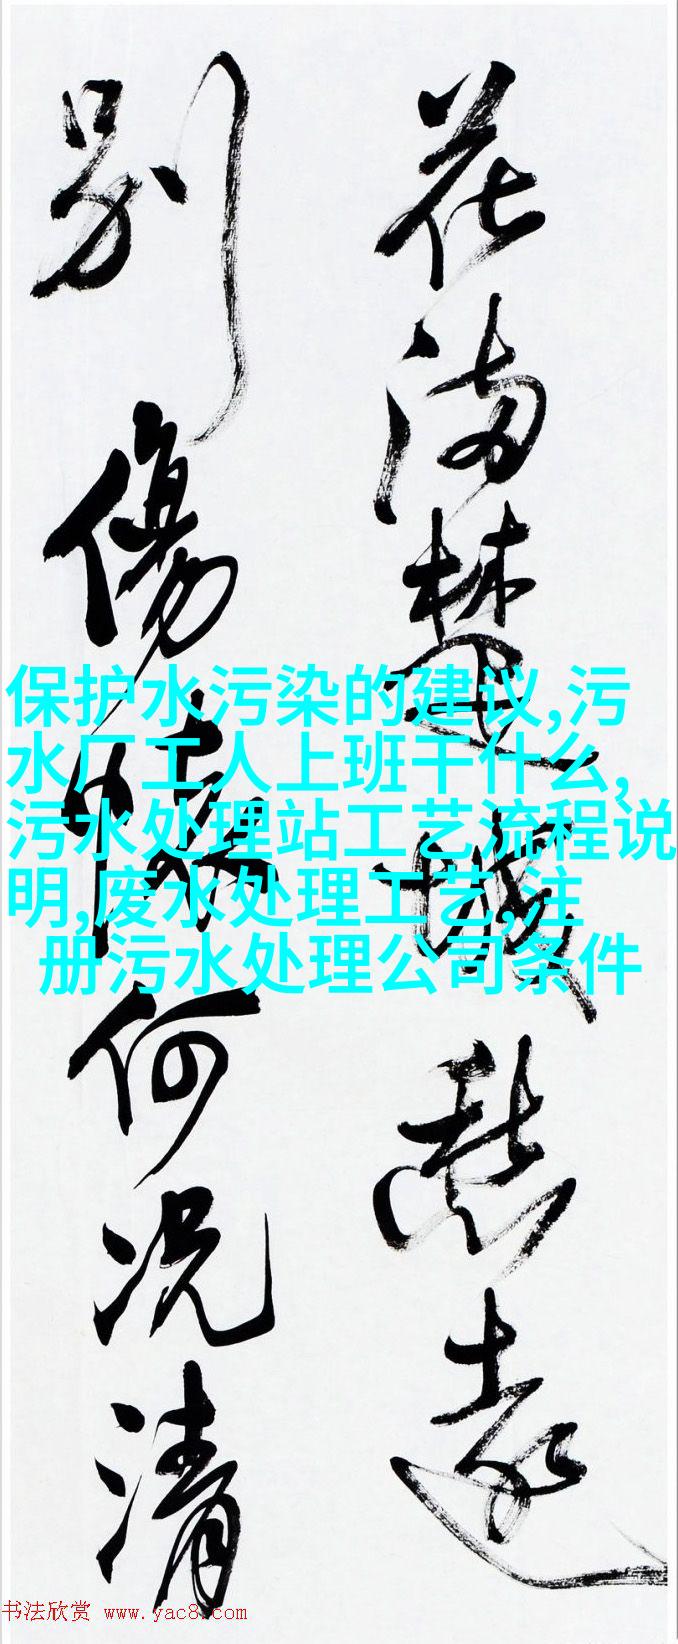 花满楚城愁远
别傷陵何况清
保护水污染的建议,污
水厂工人上班干什么,
污水处理站工艺流程说
明,废水处理工艺,注
册污水处理公司条件
书法欣赏 www.yac8.com